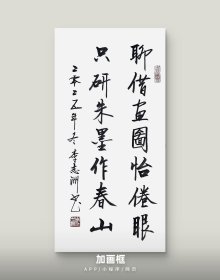 聊借画圖怡倦眼
只研朱墨作春山
二零二五年冬李志洲書
加画框
APP/小程序/网页